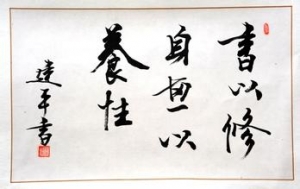 書以修
身畫以
養性
平書